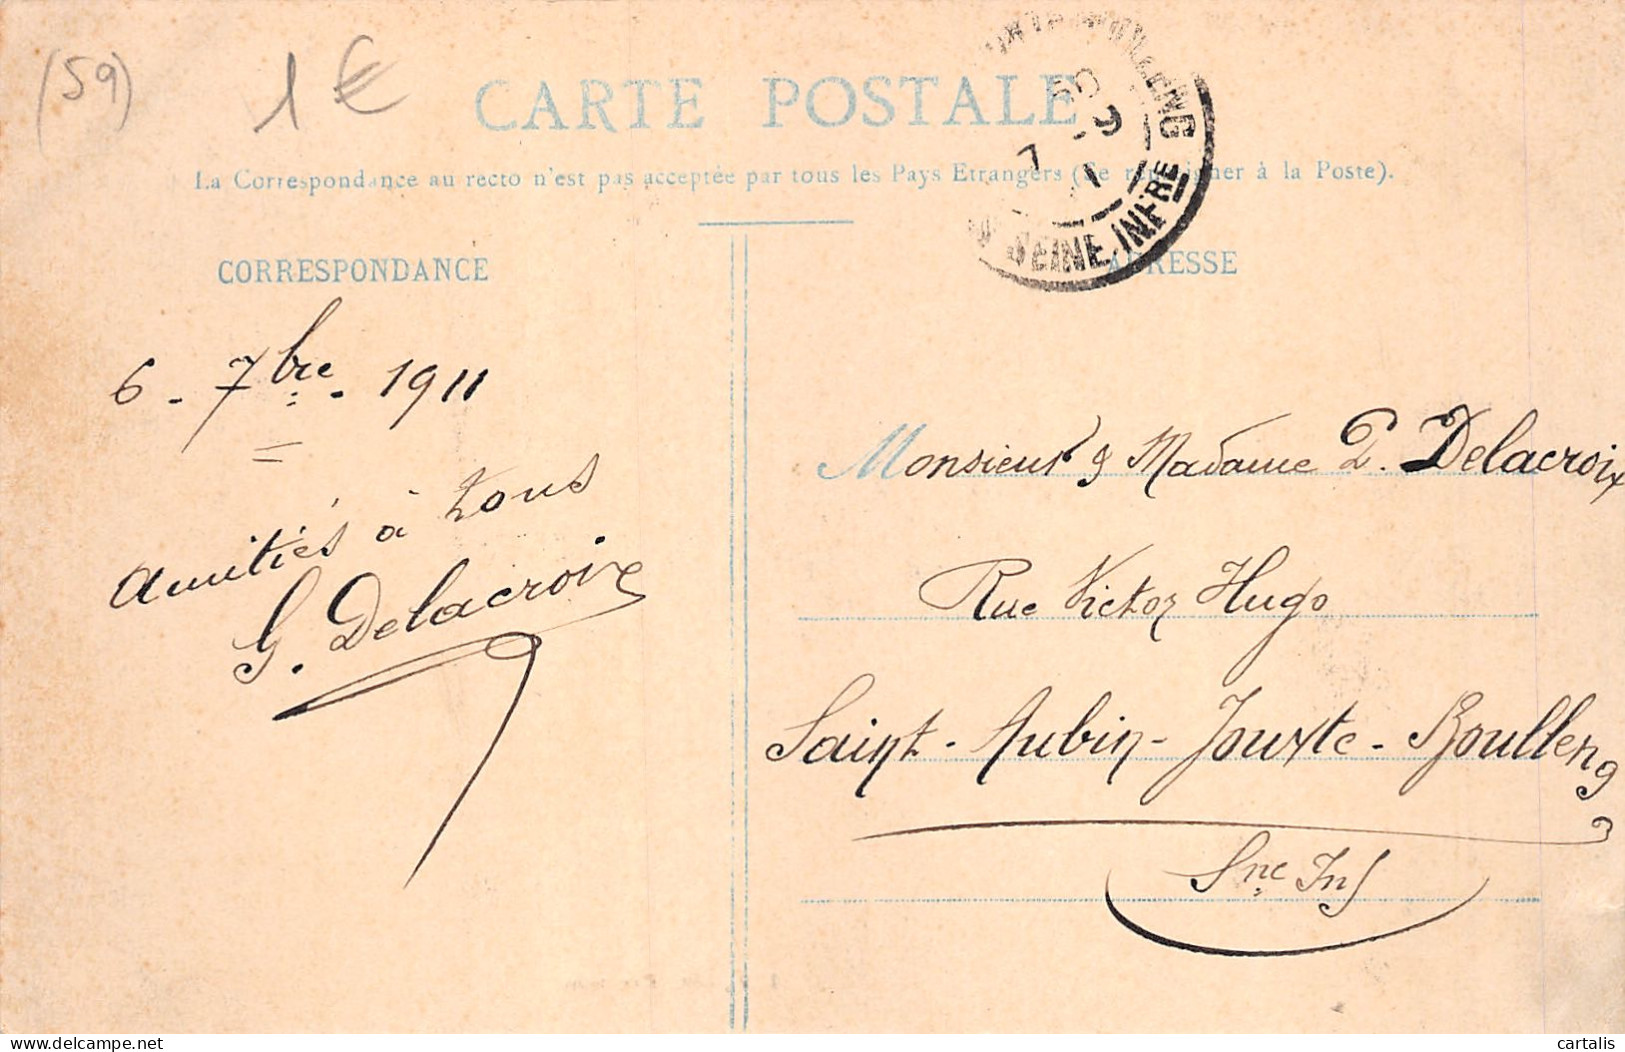 (59)
1€
CARTE POSTALE
La Correspondance au recto n'est pas acceptée par tous les Pays Etrangers (Se renseigner à la Poste).
7 -9
SEINE INFRE
CORRESPONDANCE
ADRESSE
6 - 7bre - 1911
Amitiés à tous
G. Delacroix
Monsieur & Madame P. Delacroix
Rue Victor Hugo
Saint-Aubin-Jouxte-Boulleng
Sne Inf
cartalis